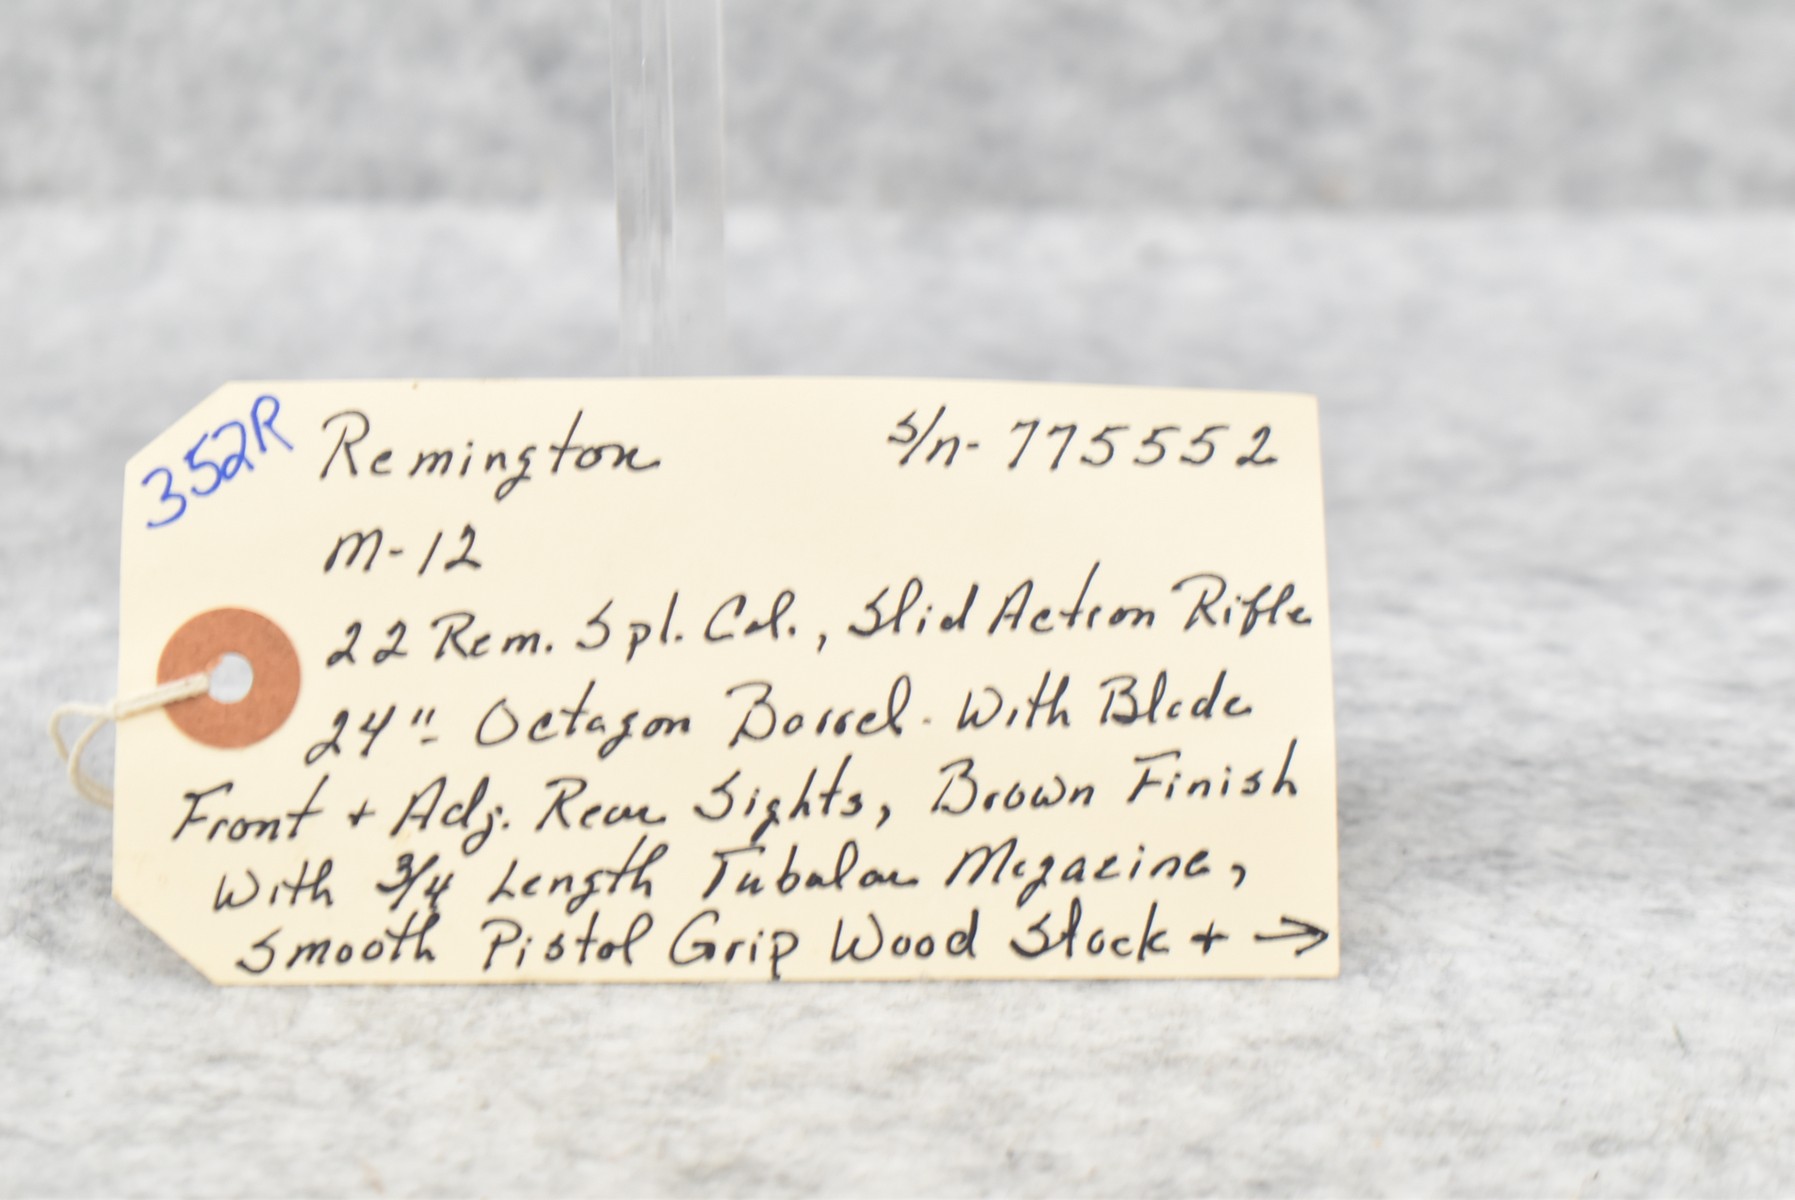 352R
Remington s/n- 775552
M-12
22 Rem. Spl. Cal., Slid Action Rifle
24"- Octagon Barrel - With Blade
Front + Adj. Rear Sights, Brown Finish
With 3/4 Length Tubular Magazine,
Smooth Pistol Grip Wood Stock + →